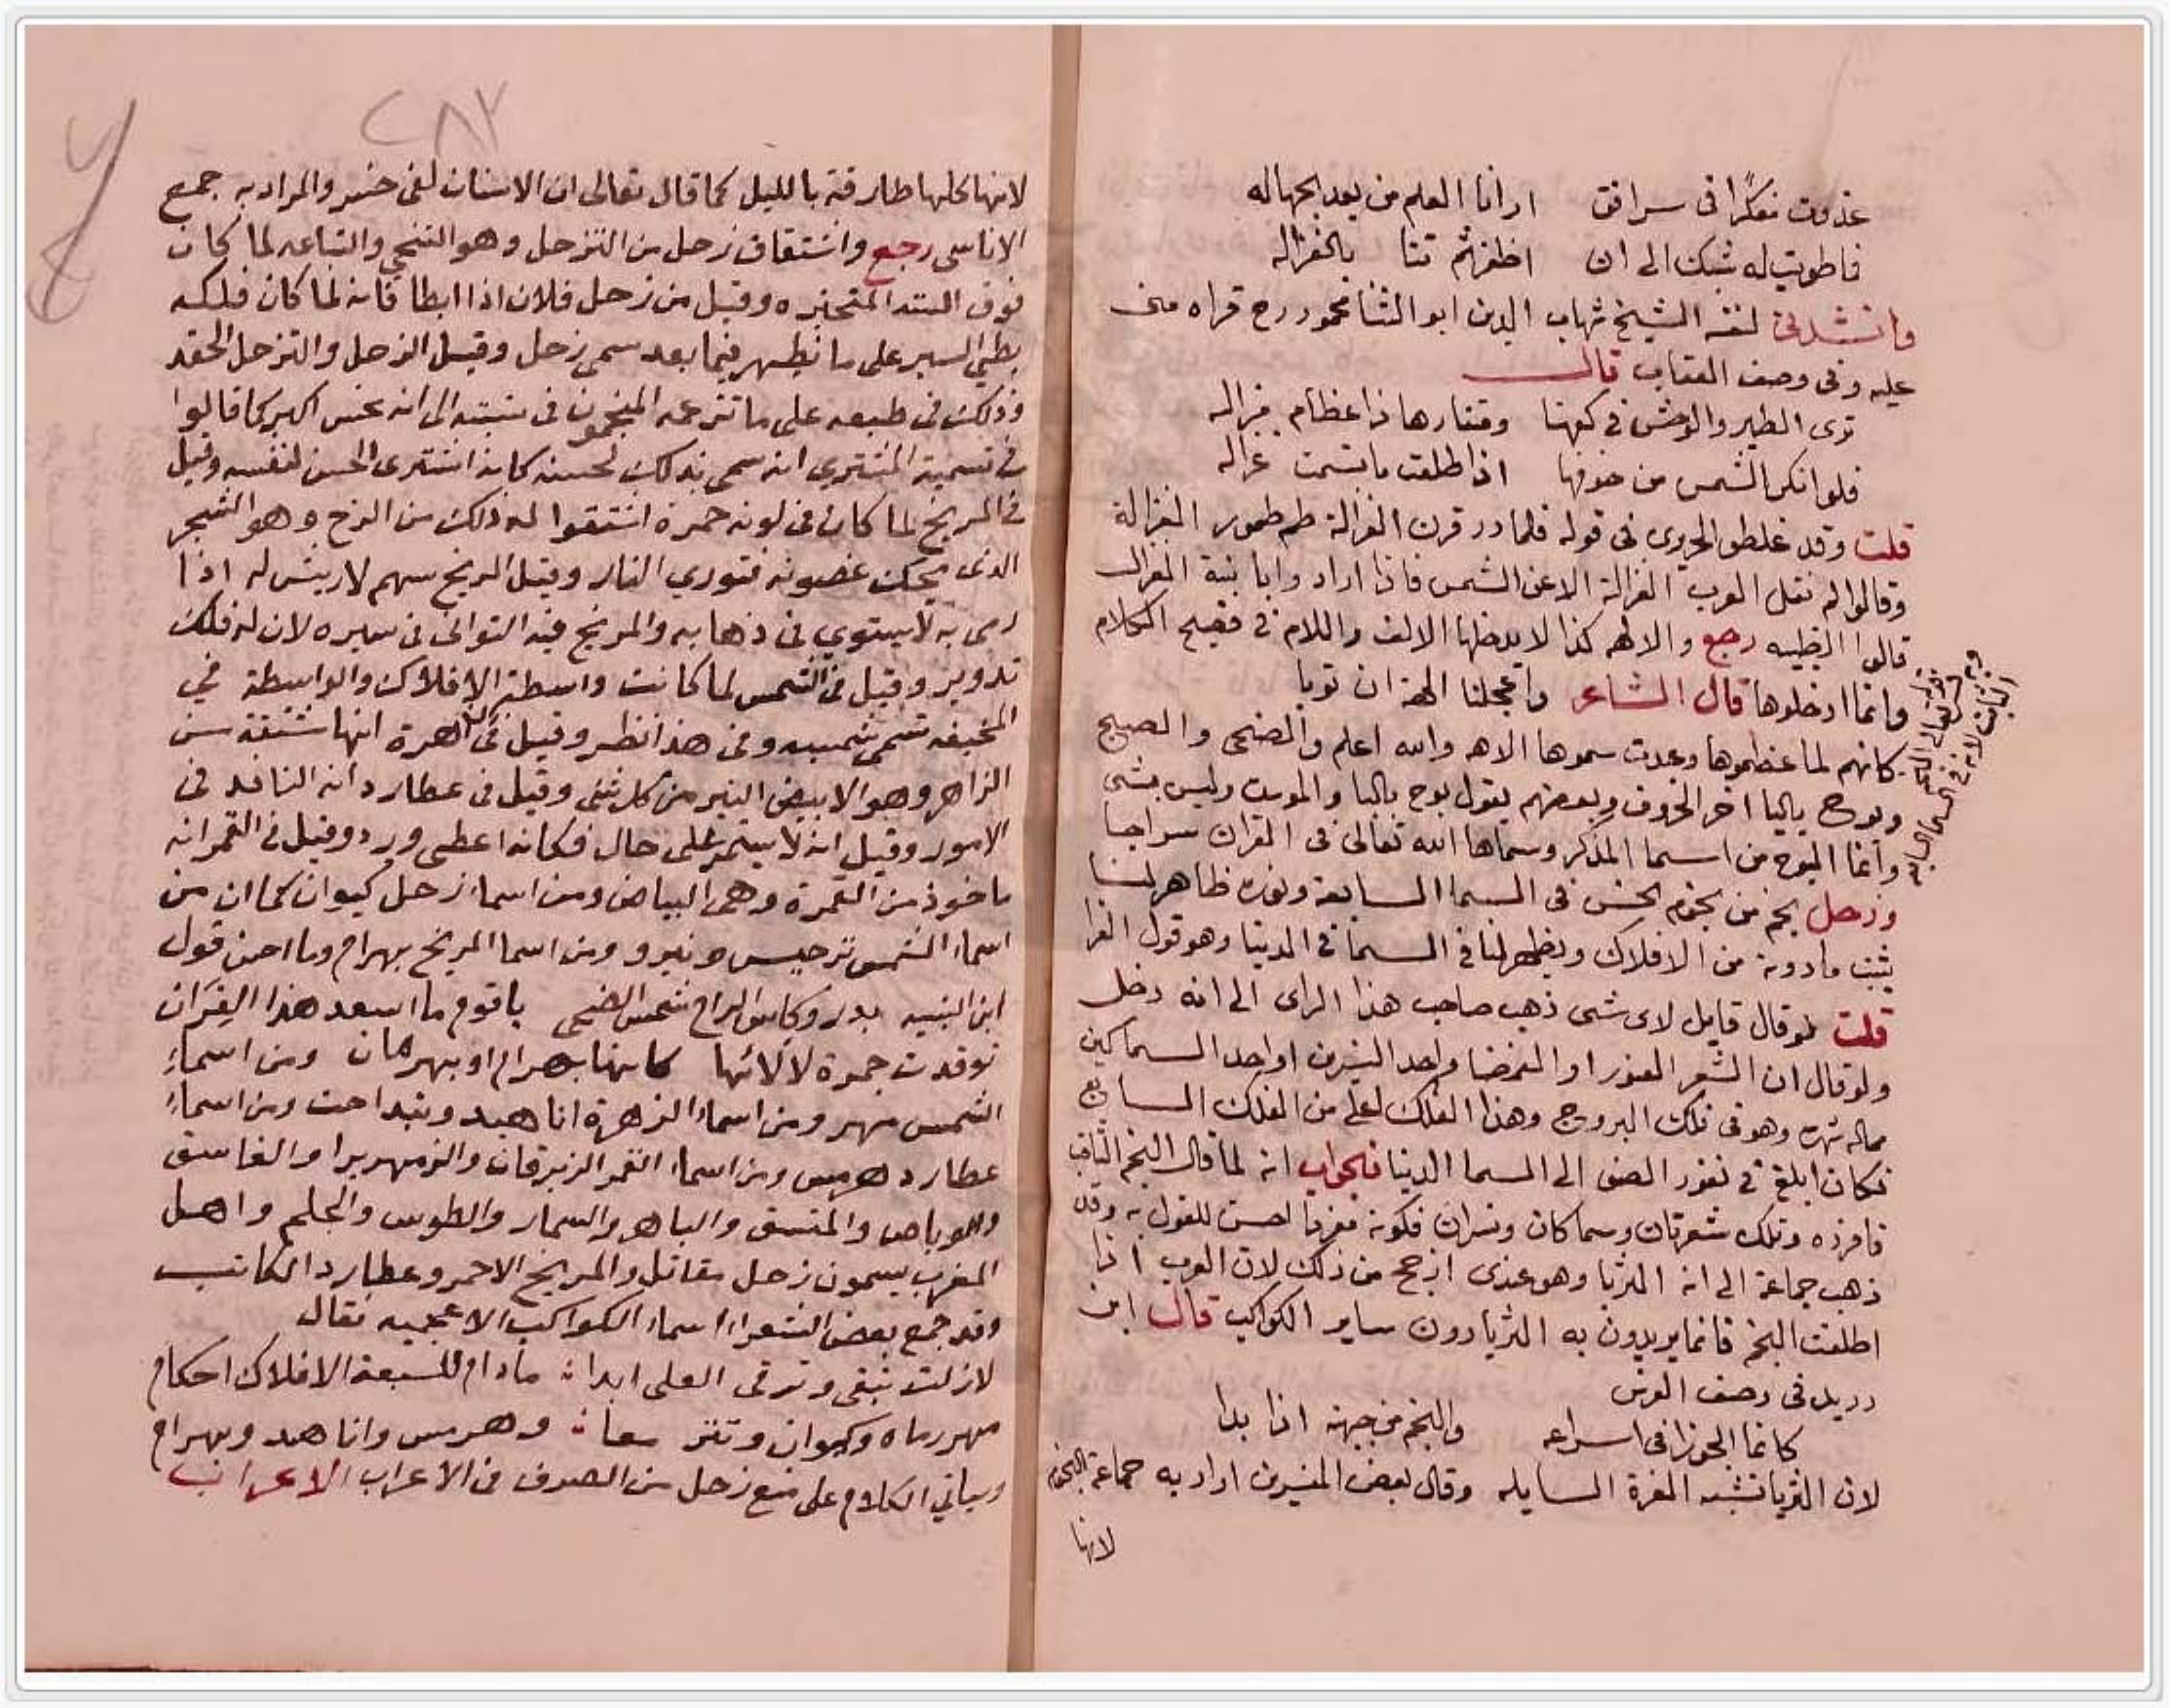 غدوت مفكرا فى سرافق ارانا العلم من بعد الجهاله
فاطويت له شبك الى ان اظفرتم تنا بالغزاله
وانشدنى لنفسه الشيخ شهاب الدين ابو الثنا محمود رح قراه منى
عليه وفى وصف العقاب قال
ترى الطير والوحش فى كفها ومنقارها ذا عظام مزاله
فلو انكر الشمس من خوفها اذا طلعت ما تسمت غزاله
قلت وقد غلطوا الحريرى فى قوله فلما در قرن الغزالة طم طمور الغزالة
وقالوا لم نقل العرب الغزالة الا عن الشمس فاذا اراد وا بانية الغزال
قالوا الظبيه رجع والالهه كذا لا يدخلها الالف واللام فى فصيح الكلام
وانما ادخلوها قال الشاعر واعجلنا الهة ان تؤبا
كانهم لما عظموها وعبدت سموها الاهه والله اعلم والضحى والصبح
ويوح باليا اخر الحروف وبعضهم يقول بوح بالبا والموت وليس بشى
وانما البوح من اسما الذكر وسماها الله تعالى فى القران سراجا
وزحل نجم من نجوم الخنس فى السما السابعة ونوره ظاهر لنا
يثقب ما دونه من الافلاك ويظهر لنا فى السما فى الدنيا وهو قول الفرا
قلت لو قال قايل لاى شى ذهب صاحب هذا الراى الى انه دخل
ولو قال ان الشعر العبور او الغمضا واحد النسرين او احد السماكين
مما له شهرة وهو فى فلك البروج وهذا الفلك اعلى من الفلك السابع
فكان ابلغ فى نفوذ الضو الى السما الدنيا فالجواب انه لما قال النجم الثاقب
فافرده وتلك شعرتان وسماكان ونسران فكونه مفردا احسن للقول به وقد
ذهب جماعة الى انه الثريا وهو عندى ارجح من ذلك لان العرب اذا
اطلقت النجم فانما يريدون به الثريا دون ساير الكواكب قال ابن
دريد فى وصف الفرس
كانما الجوزا فى اسراعه والنجم من جبهته اذا بدا
لان الثريا تشبه الغرة السايله وقال بعض المفسرين اراد به جماعة النجوم
لانها
٢٨٧
لانها كلها طارقة بالليل كما قال تعالى ان الانسان لفى خسر والمراد به جمع
الاناسى رجع واشتقاق زحل من التزحل وهو التنحى والتباعد لما كان
فوق الستة المتحيره وقيل من زحل فلان اذا ابطا فانه لما كان فلكه
بطى السير على ما يظهر فيما بعد سمى زحل وقيل الزحل والتزحل الحقد
وذلك فى طبعه على ما تزعمه المنجمون فى نسبته الى انه نحس اكبر كما قالوا
فى تسمية المشترى انه سمى بذلك لحسنه كانه اشترى الحسن لنفسه وقيل
فى المريخ لما كان فى لونه حمرة اشتقوا له ذلك من المرخ وهو الشجر
الذى يحك غصونه فتورى النار وقيل المريخ سهم لا ريش له اذا
رمى به لا يستوى فى ذهابه والمريخ فيه التوا فى سيره لان له فلك
تدوير وقيل فى الشمس لما كانت واسطة الافلاك والواسطة فى
المخنقه تسمى شمسيه وفى هذا نظر وقيل فى الزهرة انها مشتقة من
الزاهر وهو الابيض النير من كل شى وقيل فى عطارد انه النافذ فى
الامور وقيل انه لا يستمر على حال فكانه اعطى ورد وقيل فى القمر انه
ماخوذ من القمرة وهى البياض ومن اسماء زحل كيوان كما ان من
اسماء الشمس ومن اسما المريخ بهرام وما احسن قول
ابن النبيه بدر وكاس الراح شمس الضحى يا قوم ما اسعد هذا القران
توقدت جمرة لألائها كانها بهرام او بهرمان ومن اسماء
الشمس مهر ومن اسماء الزهرة اناهيد وبيداخت ومن اسماء
عطارد هرمس ومن اسماء القمر الزبرقان والزمهرير والغاسق
والوباص والمتسق والباهر والسمار والطوس والجلم واهل
المغرب يسمون زحل مقاتل والمريخ الاحمر وعطارد الكاتب
وقد جمع بعض الشعراء اسماء الكواكب الاعجميه فقال
لا زلت تبقى وترقى العلى ابدا مادام للسبعة الافلاك احكام
مهر وماه وكيوان وتير معا وهرمس واناهد وبهرام
وسياتى الكلام على منع زحل من الصرف فى الاعراب الاعراب